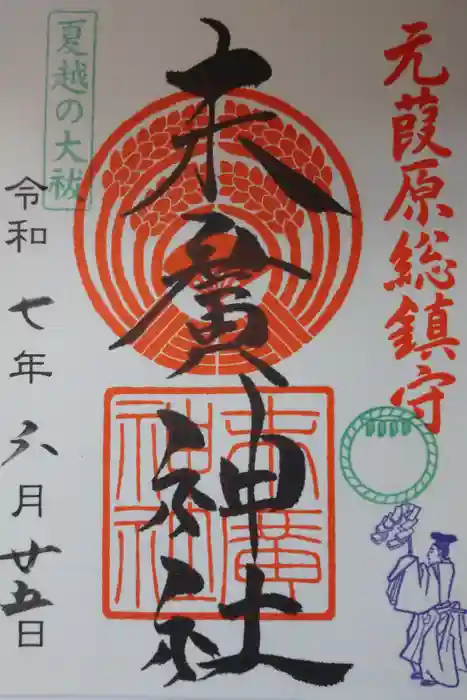 元葭原総鎮守
末廣神社
夏越の大祓
令和 七年 六月 廿五日
末廣
神社